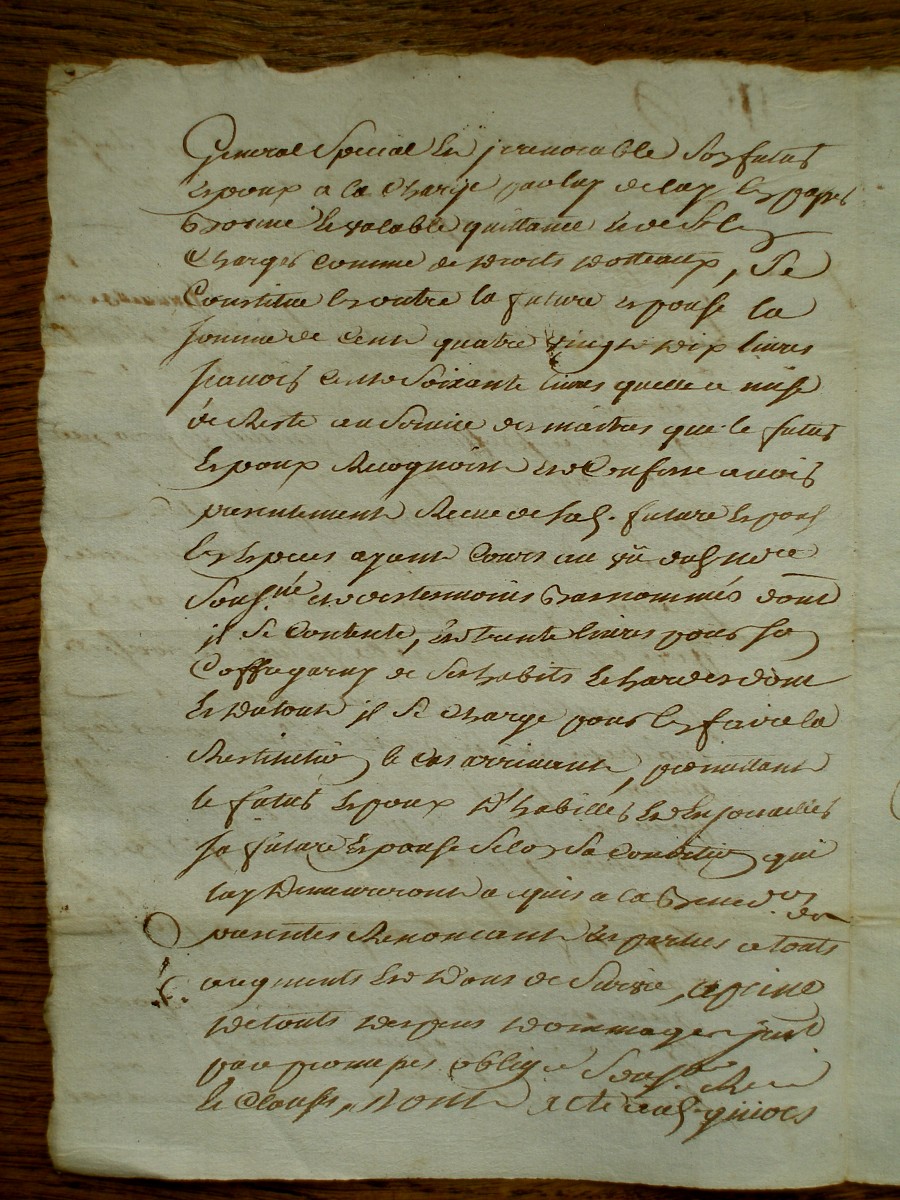 General Special et irrevocable son futur
Espoux a la charge par luy de luy les payes
bonne et valable quittance et de les
charges comme de droits dotteaux, Se
Constitue en outre la future espouse la
somme de cent quatre vingt dix livres
scavoir cent soixante livres quelle a mise
de reste au service des maitres que le futur
Espoux recognoist et confesse avois
presentement receue de lad. future Espouse
en especes ayant cours au vû dud. no.re
Sousne. et des temoins bas nommés dont
il se contente, et trente livres pour sa
coffre garny de ses habits et hardes dont
et du tout il se charge pour en faire la
Restitution le cas arrivant, promettant
le futur Espoux d'habiller et enjoailler
sa future Espouse selon sa condition qui
luy demeureront acquis a la
presentes renoncant les parties a touts
augments et dons de survie, a peine
de touts despens dommages
par promesses oblig.
et clauses, dont acte